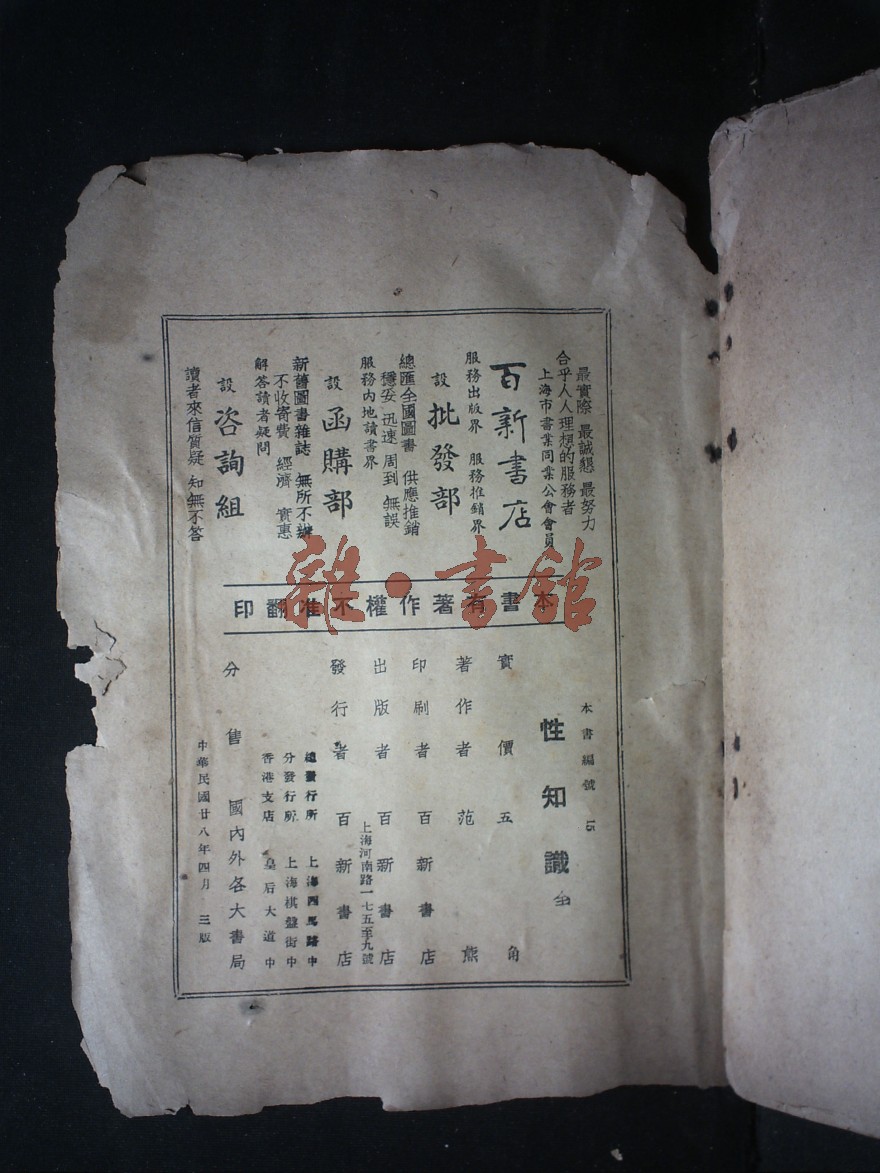 最實際 最誠懇 最努力
合乎人人理想的服務者
上海市書業同業公會會員
百新書店
服務出版界 服務推銷界
設 批發部
總匯全國圖書 供應推銷
穩妥 迅速 周到 無誤
服務內地讀書界
設 函購部
新舊圖書雜誌 無所不辦
不收寄費 經濟 實惠
解答讀者疑問
設 咨詢組
讀者來信質疑 知無不答
本書有著作權不准翻印
本書編號 15
性知識 全
實價五角
著作者 范熊
印刷者 百新書店
出版者 百新書店
上海河南路一七五至九號
發行者 百新書店
總發行所 上海四馬路中
分發行所 上海棋盤街中
香港支店 皇后大道中
分售 國內外各大書局
中華民國廿八年四月 三版
雜·書館